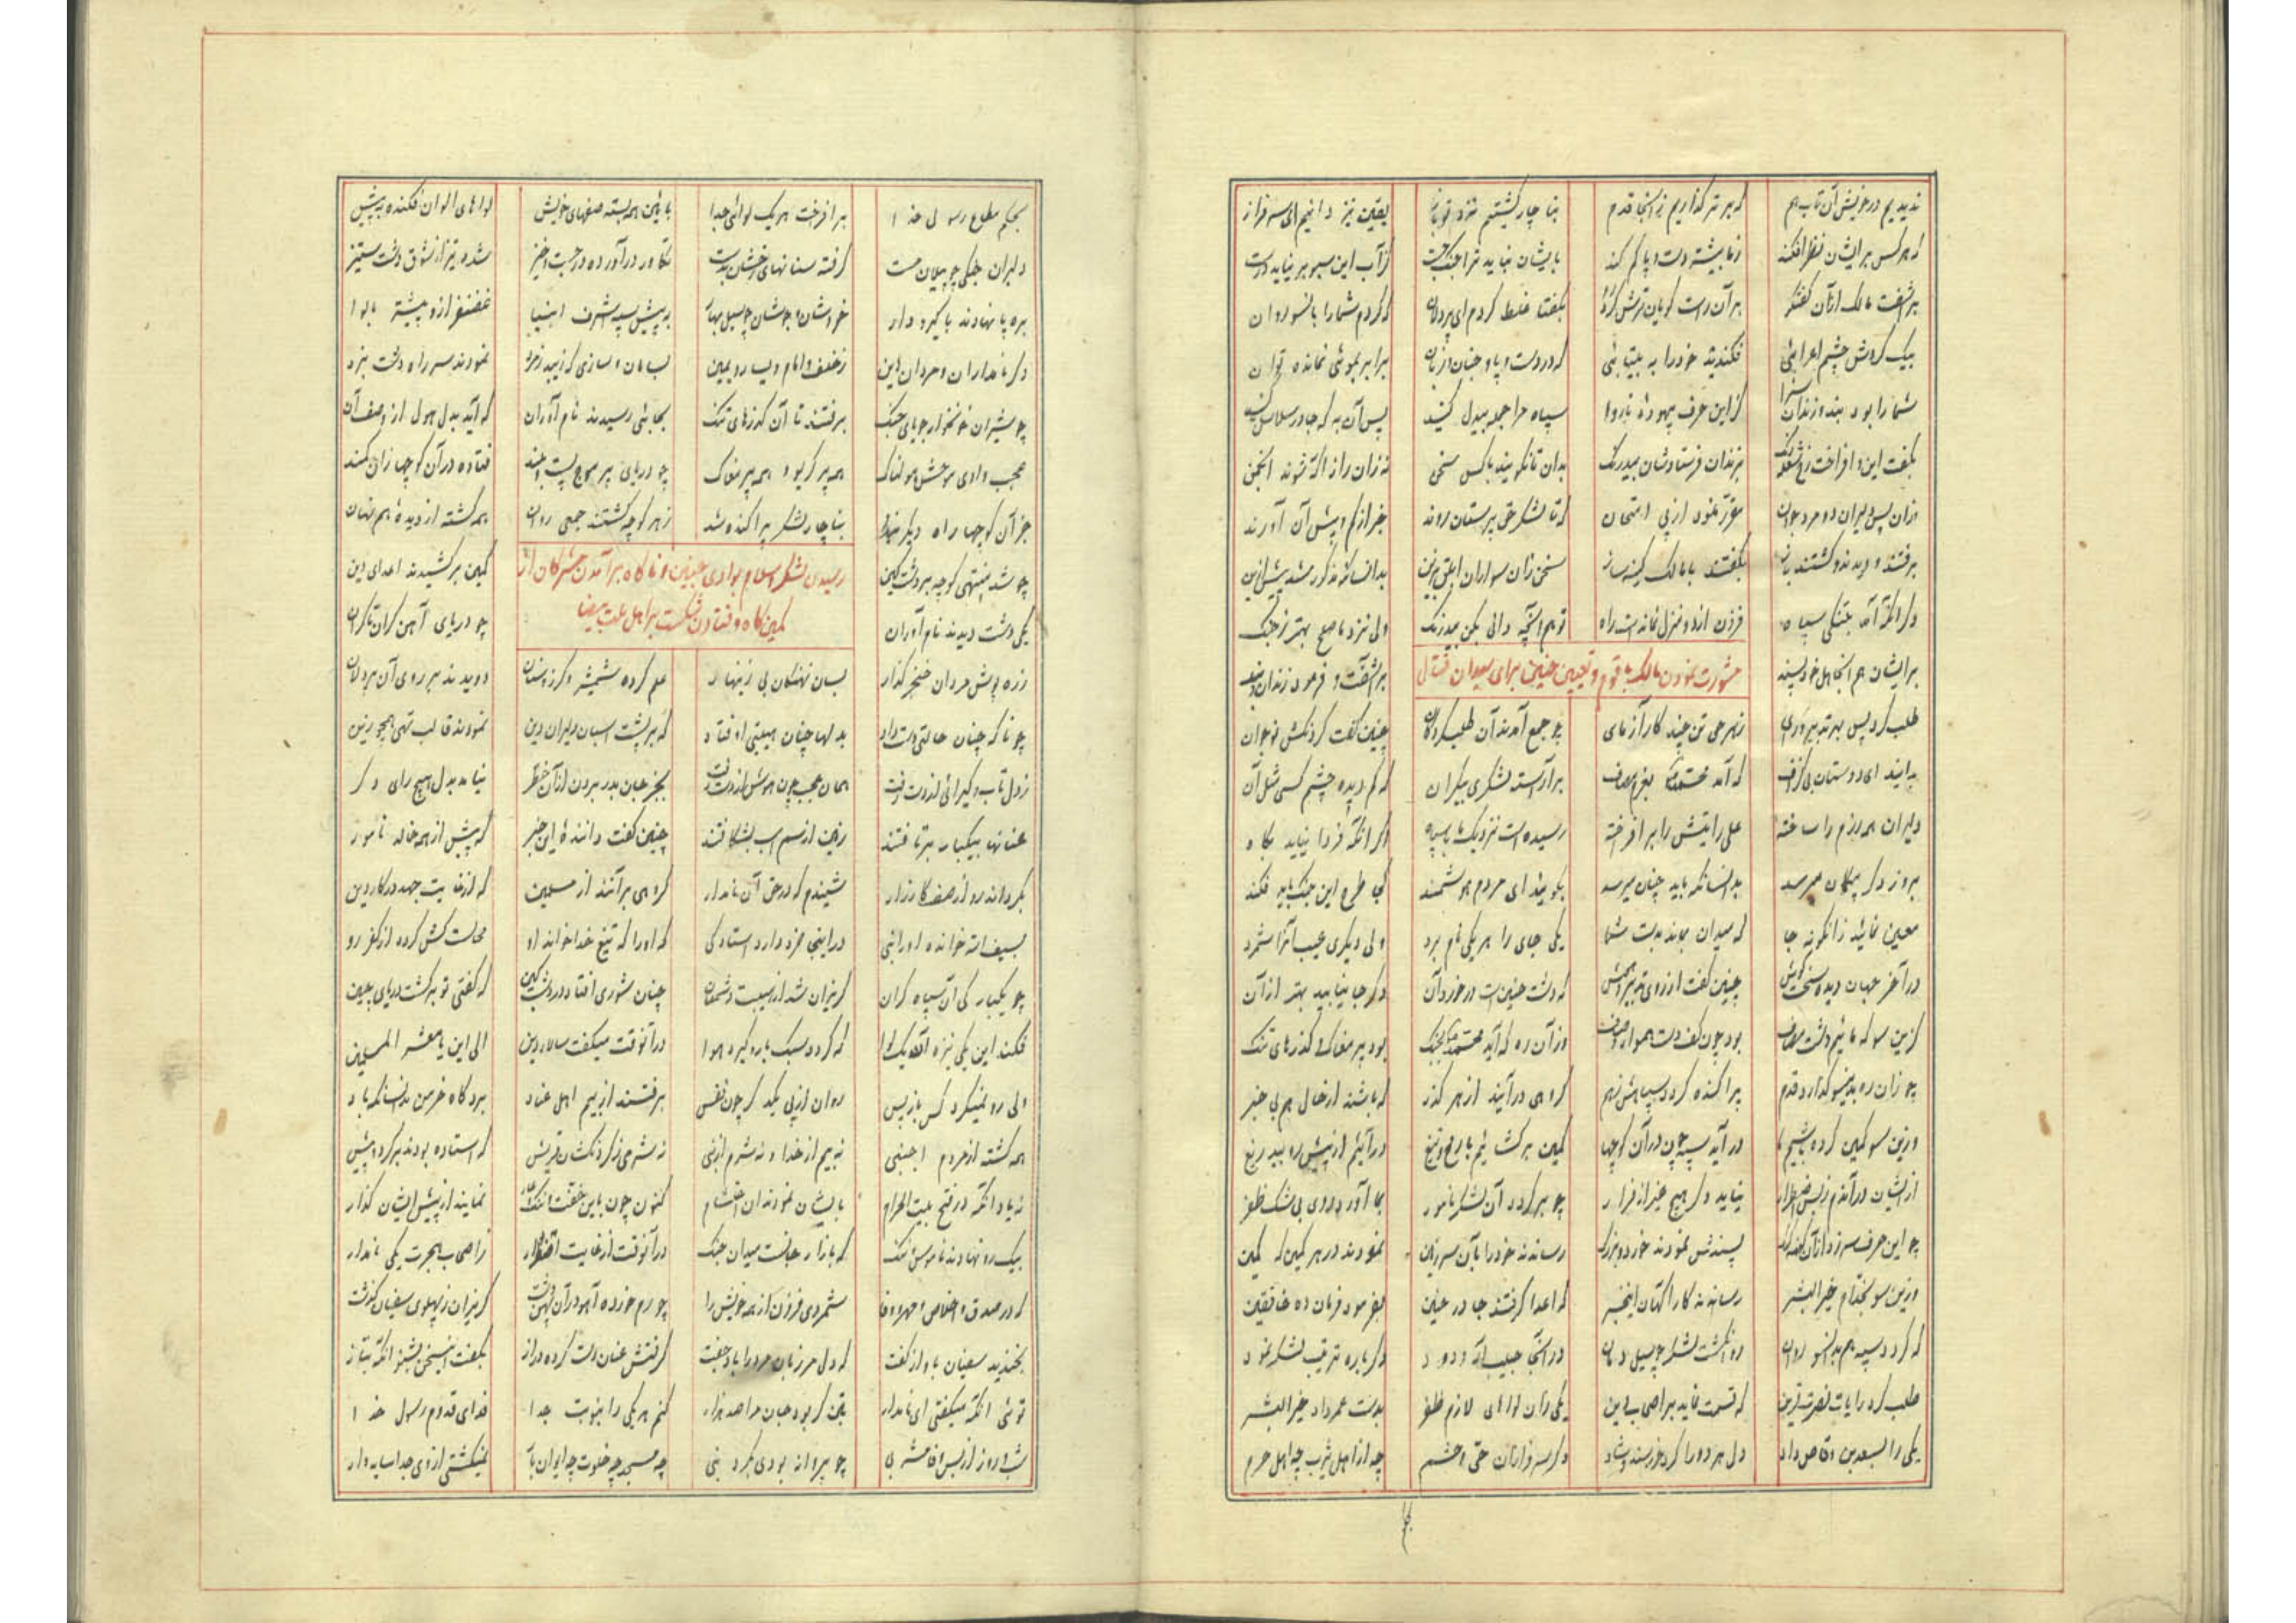 ندیدیم در خویش آن تاب هم که برتر گذاریم زانجا قدم بناچار گشتیم نزد تو باز یقین نیز دانیم ای سرفراز
که هر کس بر ایشان نظر افکند ز ما بیشتر دست و پا گم کند بایشان نباید ترا جنگ جست کز آب این سبو بر نیاید درست
برآشفت مالک از آن گفتگو بگفتا غلط کردم ای که کردم شما را بانسو روان
بیک گردش چشم اعرابئی فکندید خود را به بیتابئی که در دست و پا و برابر بموئی نمانده توان
شما را بود بند و زندان سزا کز این حرف بیهوده ناروا سپاه مرا جمله بیدل کنید پس آن به که جا در سلاسل کنید
بگفت این و افراخت بزندان فرستادشان بیدرنگ بدان تا نگویند با کس سخن نه زان راز آگه شوند انجمن
ازان پس دلیران دو مرد جوان مقرر نمود از پی امتحان که تا لشکر حق پرستان روند خبر از کم و بیش آن آورند
برفتند و دیدند و گشتند باز بگفتند با مالک کینه ساز سخن زان سواران ابلق بدانسان که مذکور شد پیش ازین
دگر آنکه آمد بتنگی سپاه فزون از دو منزل نمانده است راه تو هم آنچه دانی بکن بیدرنگ ولی نزد ما صلح بهتر ز جنگ
بر ایشان هم مشورت نمودن مالک با قوم و تعیین حنین برای میدان قتال برآشفت و فرمود زندان و بند
طلب کرد پس بهر تدبیر و رای ز هر حی تن چند کارآزمای چو جمع آمدند آن چنین گفت
بدانید ای دوستان بی گزاف که آمد محمد بعزم مصاف برآراسته لشکری بیکران که کم دیده چشم کسی مثل آن
دلیران همه رزم را ساخته علی رایتش را برافراخته رسیده است نزدیک ما با سپاه اگر آنکه فردا نیاید بگاه
بروز دگر بیگمان میرسد بدانسان که باید چنان میرسد بگوئید ای مردم هوشمند کجا طرح این جنگ باید فکند
معین نمائید زانگونه جا که میدان بماند بدست شما یکی جای را هر یکی نام برد ولی دیگری عیب آنرا شمرد
در آخر جهان دیده چنین گفت از روی تدبیر که دشت حنین است در خورد آن دگر جا نیابید بهتر از آن
کزین سو که مائیم دشت مصاف بود چون کف دست هموار و صاف وز آن ره که آید محمد بجنگ بود پر مغاک و گذرهای تنگ
چو زان ره بدینسو گذارد قدم پراکنده گردد سپاهش ز هم گروهی درآیند از هر گذر که باشند از حال هم بی خبر
وزین سو کمین کرده باشیم ما درآید سپه چون در آن کوچها کمین برگشائیم با رمح و تیغ درآئیم از پیش رو بیدریغ
از ایشان نیاید دگر هیچ غیر از فرار چو برگردد آن لشکر نامور بما آورد روی بی شک ظفر
چو این حرف سر زد ازان پسندش نمودند خورد و بزرگ رساندند خود را بآن سرزمین نمودند در هر کمین گه کمین
وزین سو بخدام خیر البشر رساندند کارآگهان این خبر که اعدا گرفتند جا در حنین بفرمود فرمان ده خافقین
که گردد سپه هم بدانسو روان روان گشت لشکر چو سیل دمان در آنجا حبیب اله ودود دگرباره ترتیب لشکر نمود
طلب کرد رایات نصرت قرین که قسمت نماید بر اصحاب دین یکی زان لواهای لازم ظفر بدست عمر داد خیر البشر
یکی را بسعد بن وقاص داد دل هر دو را کرد خرسند و شاد دگر سرفرازان حی و حشم چه از اهل یثرب چه اهل حرم
بحکم مطاع رسول خدا برافراخت هر یک لوائی جدا بآئین همه بسته صفهای خویش لواهای الوان فکنده به پیش
دلیران جنگی چو پیلان مست گرفته سنانهای رخشان بدست تکاور درآورده در جست و خیز شده تیز از شوق دشت ستیز
بره پا نهادند با گیر و دار خروشان و جوشان چو سیل بهار به پیش سپه اشرف انبیا غضنفر ازو پیشتر با لوا
دگر نامداران و مردان دین ز خلف و امام و یسار و یمین نمودند سر راه دشت نبرد
چو شیران خونخوار جویای جنگ برفتند تا آن گذرهای تنگ بجائی رسیدند نام آوران که آید بدل هول از وصف آن
عجب وادی موحش هولناک همه پر کریوه همه پر مغاک چو دریای پر موج پست و بلند فتاده در آن کوچها
جز آن کوچها راه دیگر نبود بناچار لشکر پراکنده شد ز هر کوچه گشتند جمعی روان همه گشته از دیده هم نهان
چو شد منتهی کوچه بر دشت کین رسیدن لشکر اسلام بوادی حنین و ناگاه برآمدن مشرکان از کمین برکشیدند اعدای دین
یکی دشت دیدند نام آوران کمین گاه و فتادن شکست بر اهل ملت بیضا چو دریای آهن کران تا کران
زره پوش مردان خنجر گذار بسان نهنگان بی زینهار علم کرده شمشیر و گرز و سنان دویدند بر روی آن
چو ناگه چنان حالتی دست داد بدلها چنان هیبتی اوفتاد که بر پشت اسبان دلیران دین نمودند قالب تهی همچو زین
ز دل تاب و گیرائی از دست رفت بجز جان بدر بردن از آن خطر نیامد بدل هیچ رای دگر
عنانها بیکبار برتافتند زمین از سم اسب بشکافتند چنین گفت دانندۀ این خبر که پیش از همه خالد نامور
بگرداند رو از صف کارزار شنیدم که در حق آن نامدار گروهی برآنند از مسلمین که از غایت جهد در کار دین
بسیف اله خوانده او را نبی در اینجا خرد دارد استادگی که او را که تیغ خدا خواند او محالست کش گردد از کفر رو
چو یکبارگی آن سپاه گران گریزان شد از هیبت دشمنان چنان شوری افتاد در دشت کین که گفتی تو برگشت دریای چین
فکند این یکی نیزه که گردد سبک باره گیرد هوا در آنوقت میگفت سالار دین الی این یا معشر المسلمین
ولی رو نمیکرد کس باز پس روان از پی یکدگر چون نفس برفتند از بیم اهل عناد برد کاه خرمن بدانسان که باد
همه گشته از مردم اجنبی نه بیم از خدا و نه شرم از نبی نه شرمی ز گردنکشان قریش که استاده بودند بر گرد و پیش
زیاد آنکه در فتح بیت الحرام بایشان نمودند آن احتشام کنون چون باین خفت نمایند از پیش ایشان گذار
بیک رو نهادند ناموس و ننگ که بازار جانست میدان جنگ در آنوقت از غایت اضطرار ز اصحاب هجرت یکی نامدار
که در صدق و اخلاص و مهر و وفا شمردی فزون از همه خویش را چو رم خورده آهو در آن پهن دشت گریزان ز پهلوی سفیان گذشت
بخندید سفیان بآواز گفت گرفتش عنان دست کرده دراز بگفت این سخن بشنو آنگه بتاز
توئی آنکه میگفتی ای نامدار بتن گر بود جان مرا صد هزار کنم هر یکی را بنوبت جدا فدای قدوم رسول خدا
شب و روز از بس چو پروانه بودی بگرد نبی چه مسجد چه خلوت چه ایوان نمیگشتی از وی جدا سایه وار